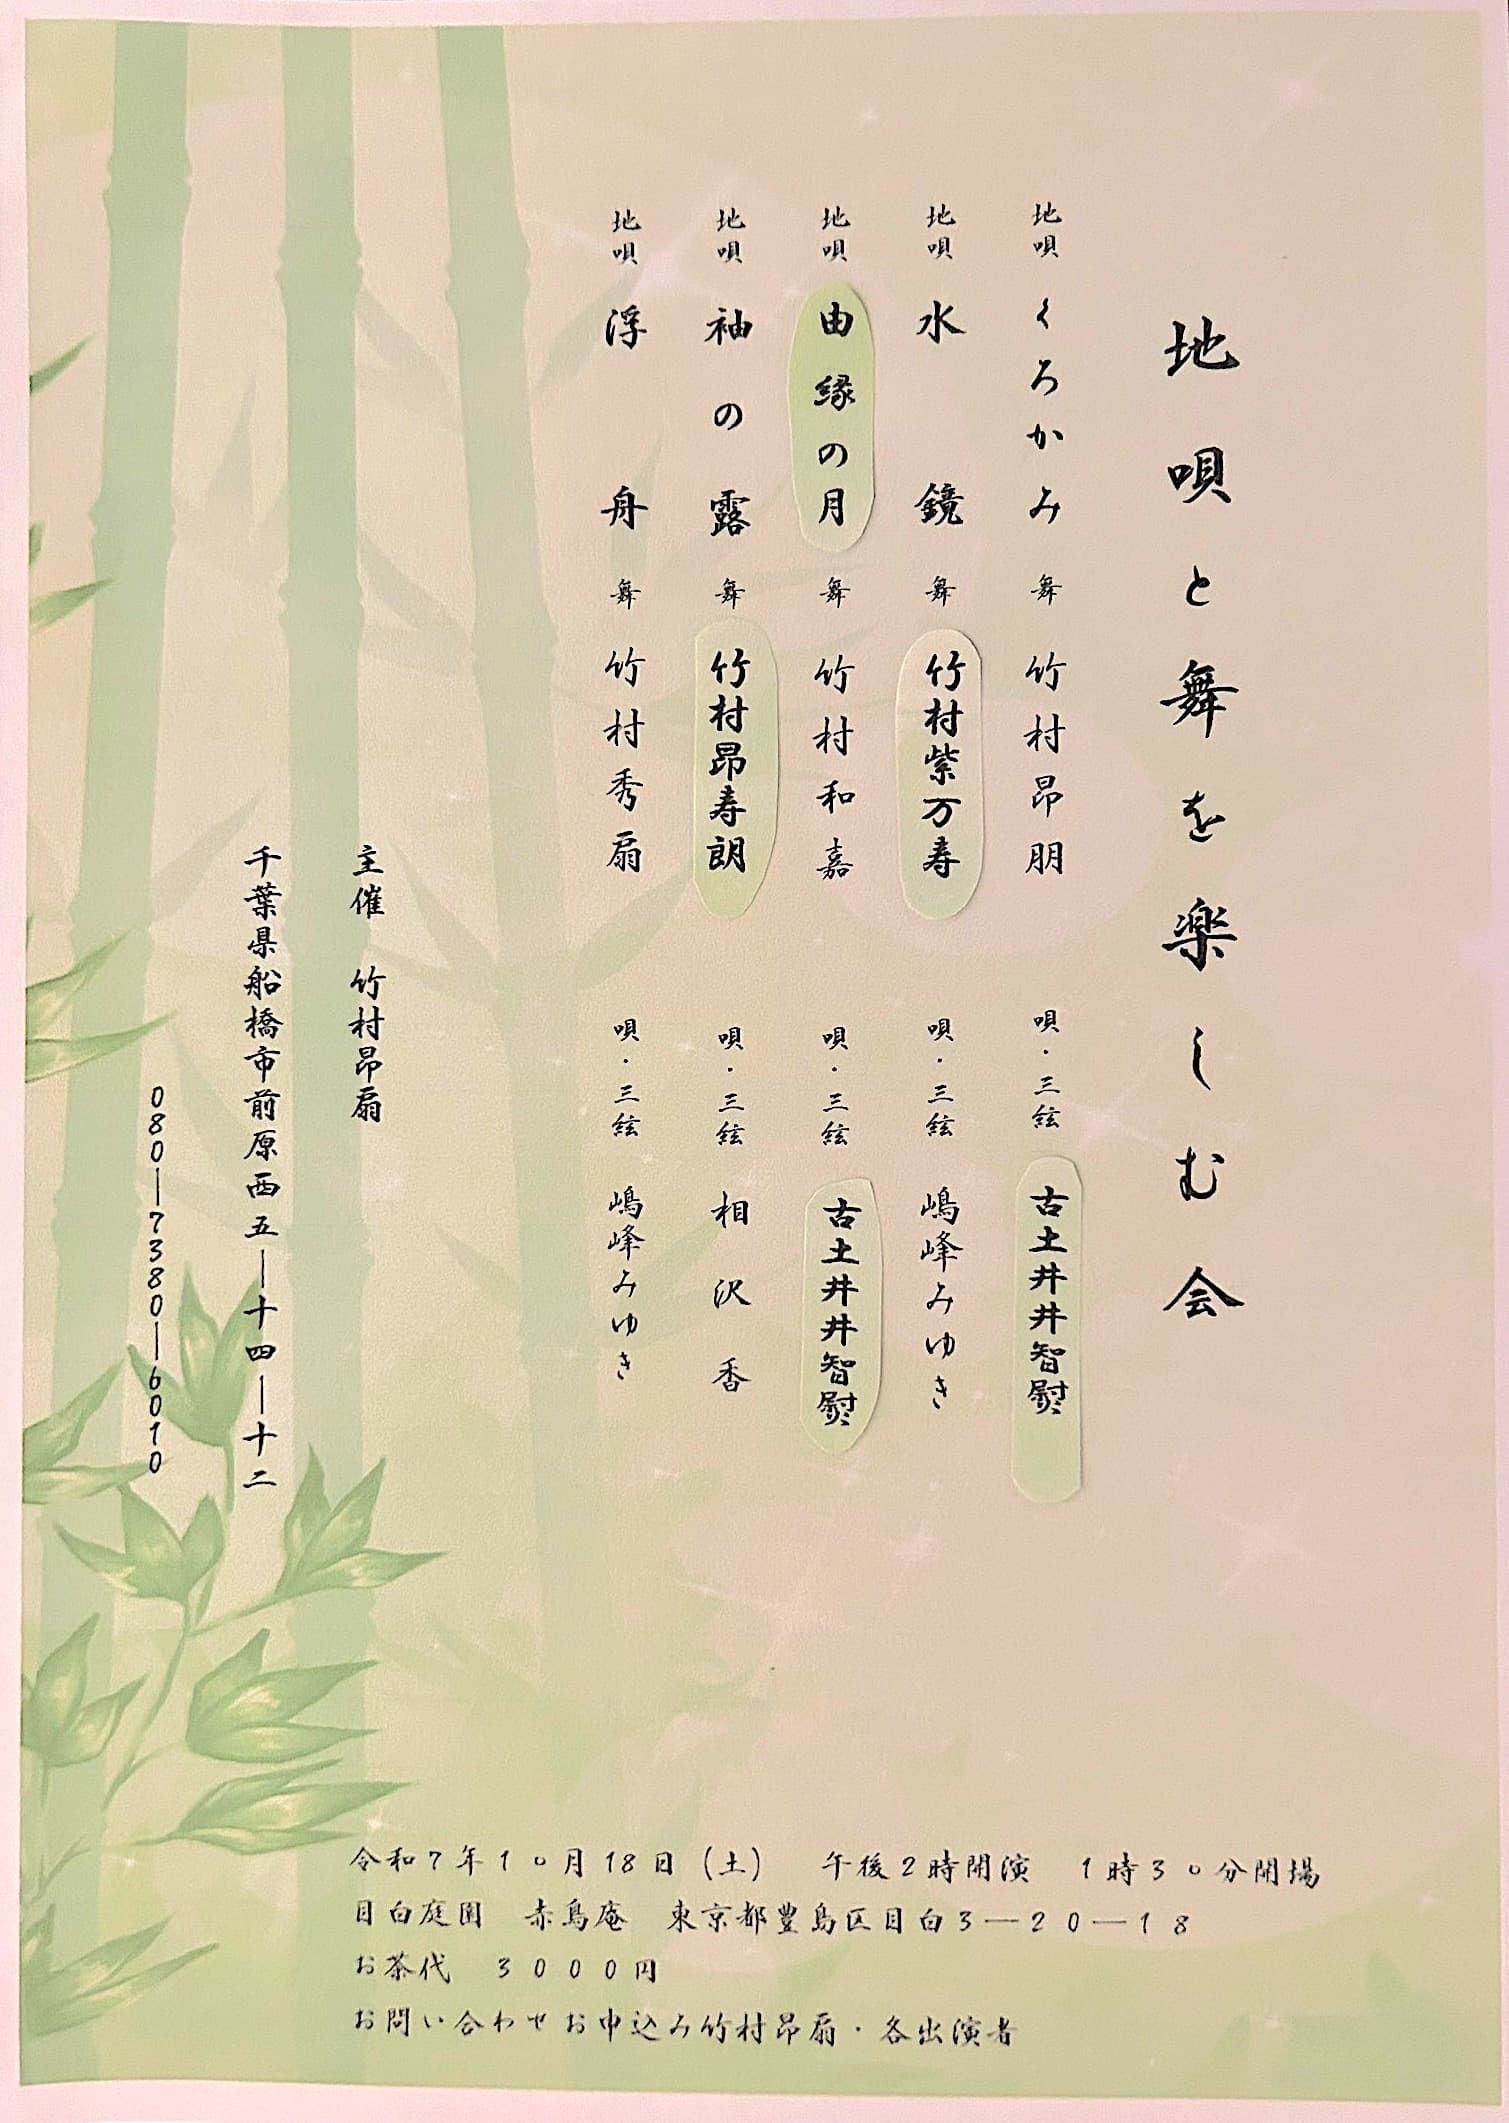 地唄と舞を楽しむ会
地唄 くろかみ 舞 竹村昂朋 唄・三絃 古土井井智熨
地唄 水鏡 舞 竹村紫万寿 唄・三絃 嶋峰みゆき
地唄 由縁の月 舞 竹村和嘉 唄・三絃 古土井井智熨
地唄 袖の露 舞 竹村昂寿朗 唄・三絃 相沢香
地唄 浮舟 舞 竹村秀扇 唄・三絃 嶋峰みゆき
主催 竹村昂扇
千葉県船橋市前原西五―十四―十二
080―7380―6010
令和7年10月18日(土) 午後2時開演 1時30分開場
目白庭園 赤鳥庵 東京都豊島区目白3―20―18
お茶代 3000円
お問い合わせお申込み竹村昂扇・各出演者